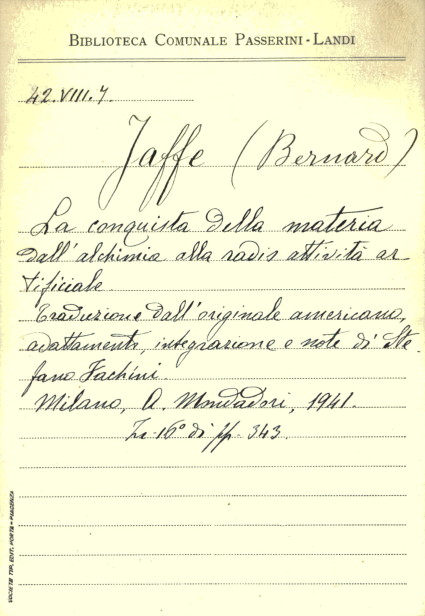 BIBLIOTECA COMUNALE PASSERINI-LANDI
42.VIII.7.
Jaffe (Bernard)
La conquista della materia
dall'alchimia alla radio attività ar-
tificiale
Traduzione dall'originale americano,
adattamenti, integrazione e note di Ste-
fano Fachini.
Milano, A. Mondadori, 1941.
In 16° di pp. 343.
SOCIETÀ TIP. EDIT. PORTA - PIACENZA